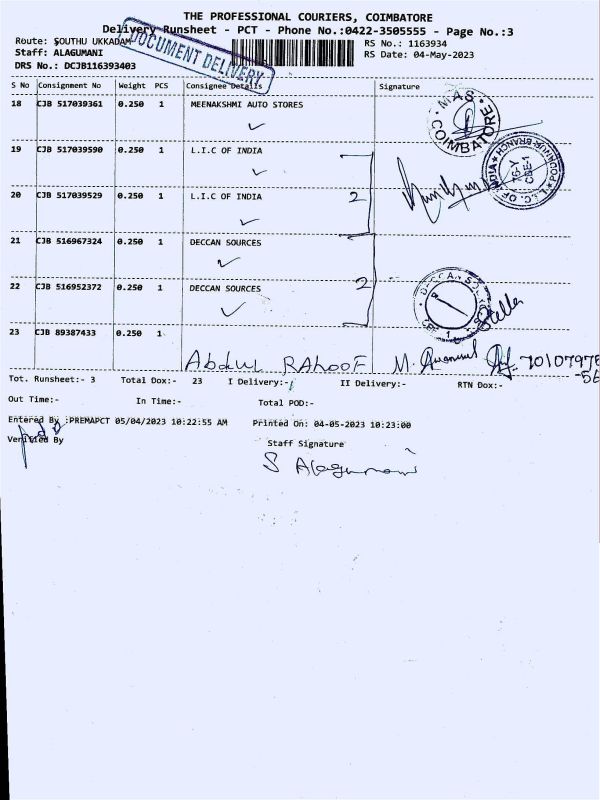 THE PROFESSIONAL COURIERS, COIMBATORE
Delivery Runsheet - PCT - Phone No.:0422-3505555 - Page No.:3
Route: SOUTHU UKKADAM
RS No.: 1163934
Staff: ALAGUMANI
RS Date: 04-May-2023
DRS No.: DCJB116393403
DOCUMENT DELIVERY
S No Consignment No Weight PCS Consignee Details Signature
18 CJB 517039361 0.250 1 MEENAKSHMI AUTO STORES
MAS COIMBATORE
19 CJB 517039590 0.250 1 L.I.C OF INDIA
20 CJB 517039529 0.250 1 L.I.C OF INDIA
2
21 CJB 516967324 0.250 1 DECCAN SOURCES
22 CJB 516952372 0.250 1 DECCAN SOURCES
2
23 CJB 89387433 0.250 1
Abdul RAhooF M. 70107978
-56
Tot. Runsheet:- 3 Total Dox:- 23 I Delivery:- II Delivery:- RTN Dox:-
Out Time:- In Time:- Total POD:-
Entered By :PREMAPCT 05/04/2023 10:22:55 AM Printed On: 04-05-2023 10:23:00
Verified By Staff Signature
S Alagumani